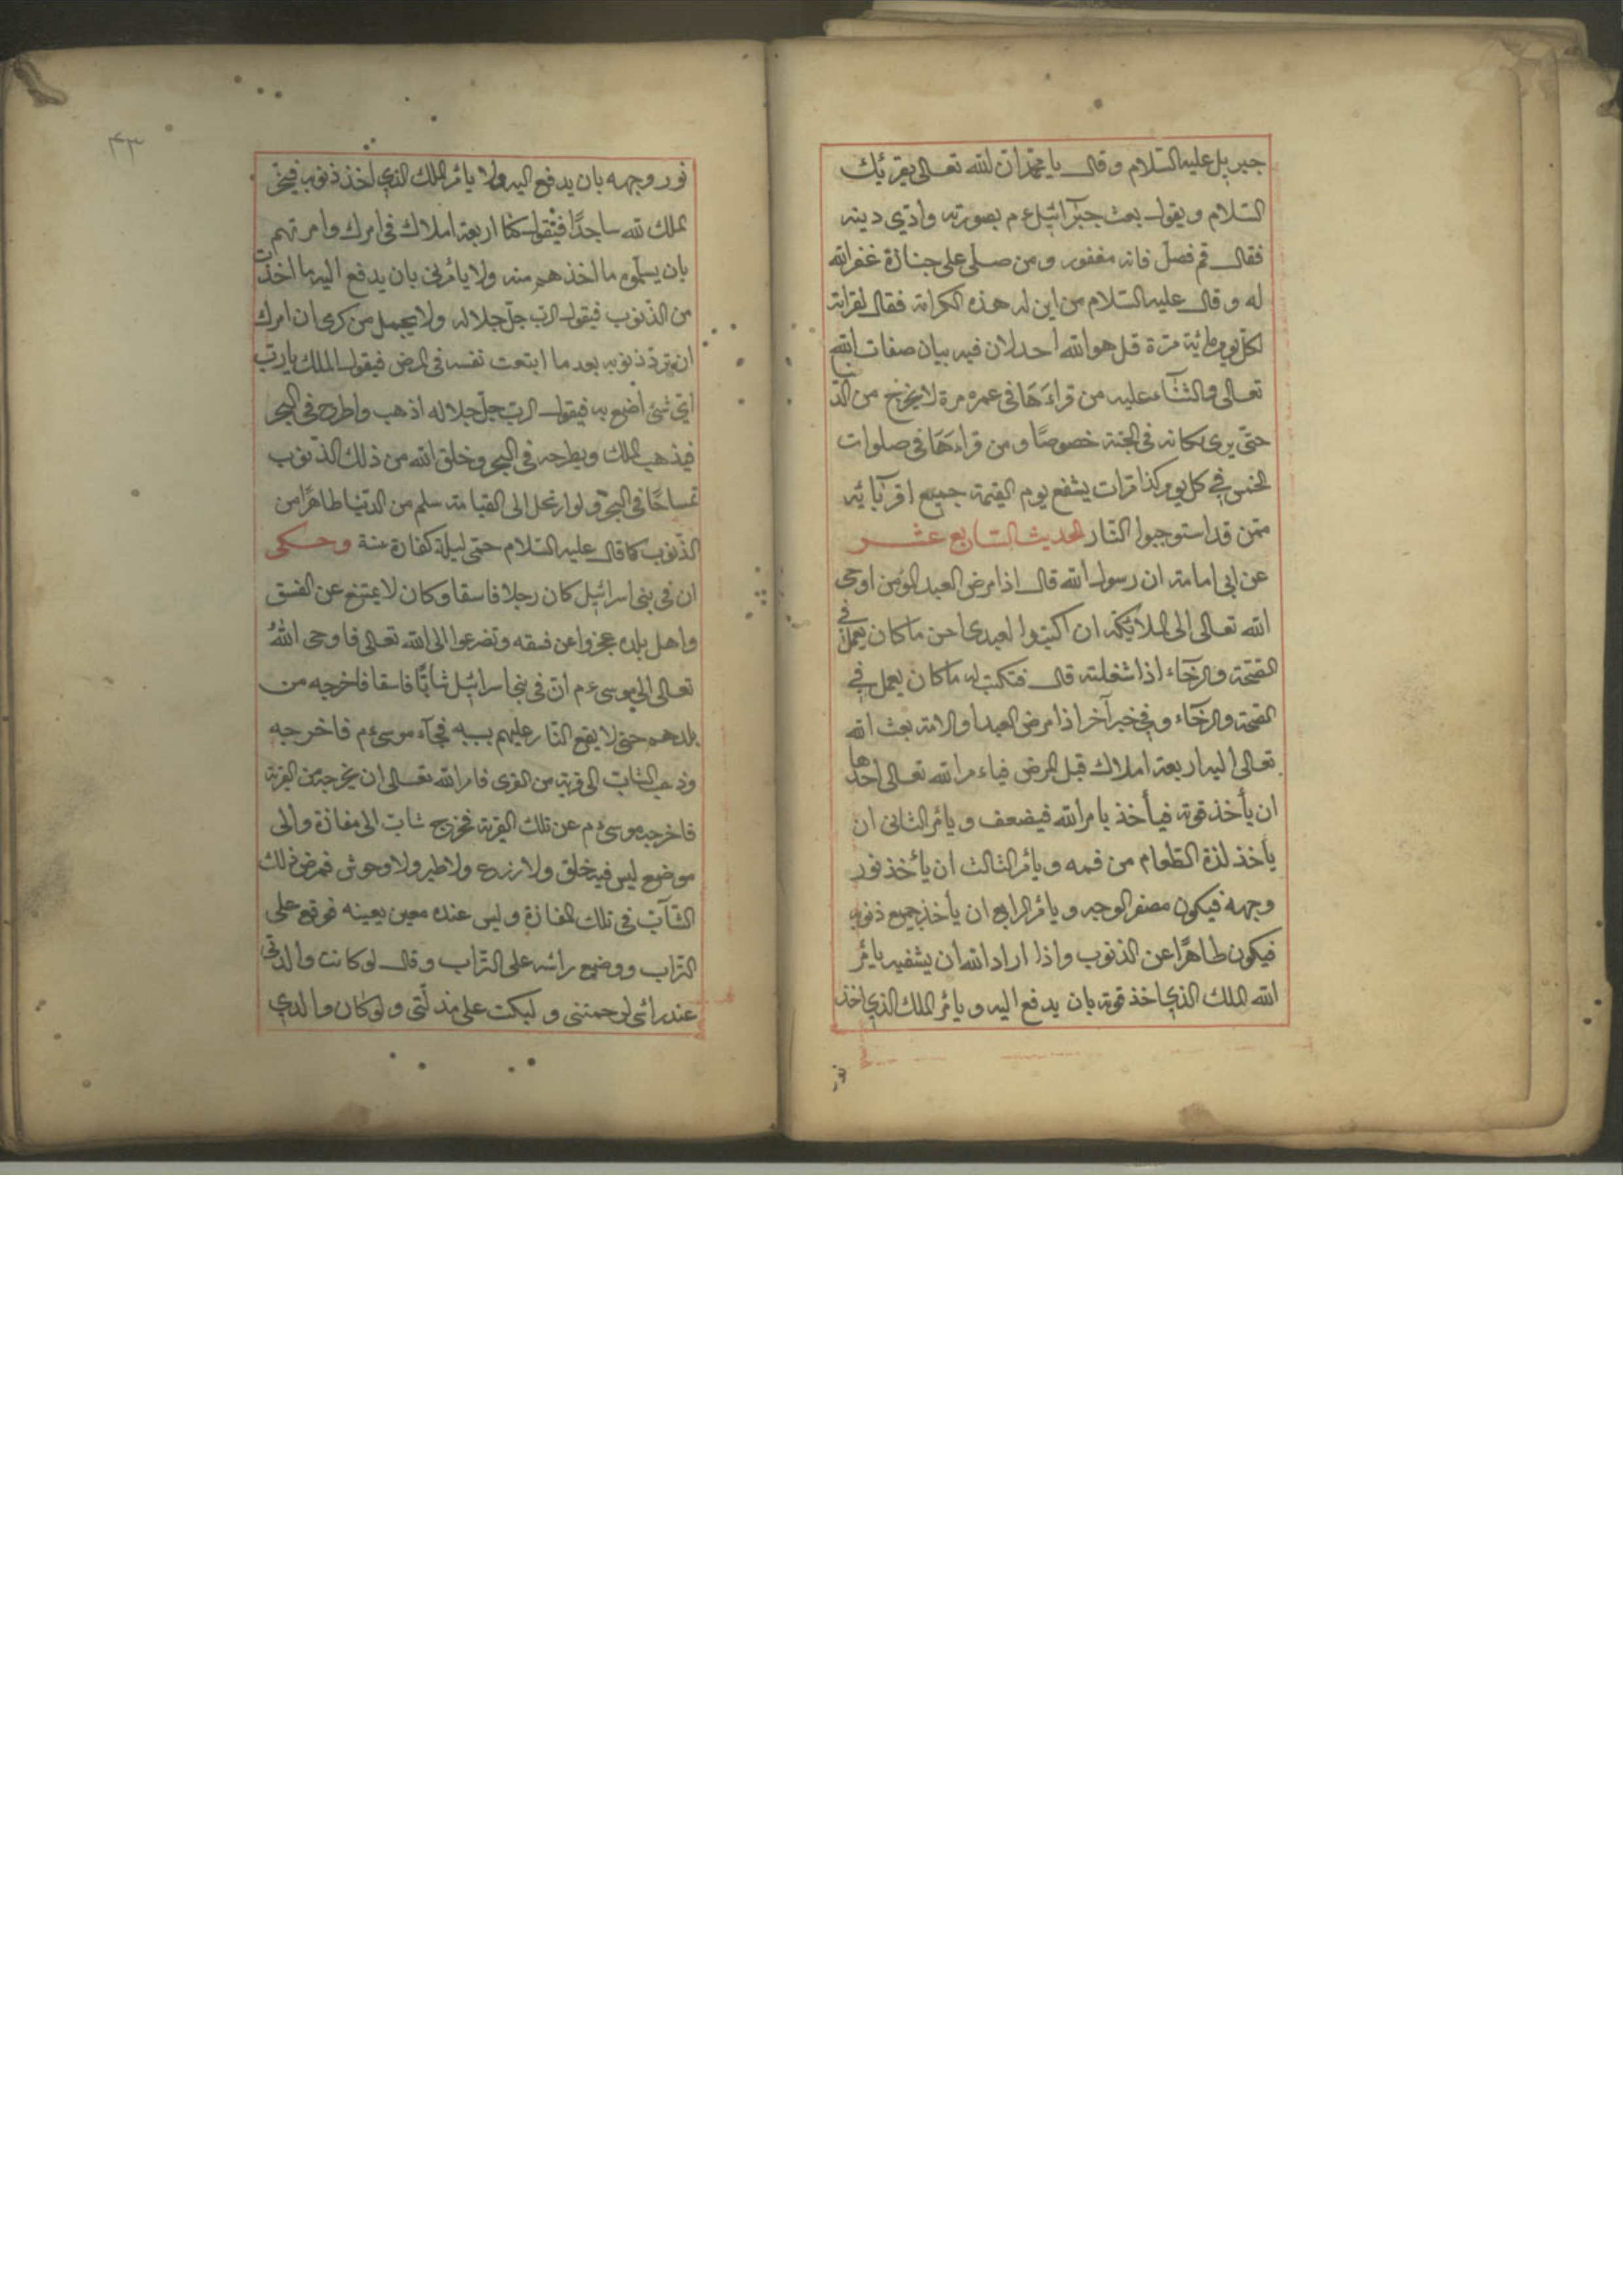 جبريل عليه السّلام وقال يا محمّد انّ الله تعالى يقرئك
السّلام ويقول بعث جبرآئيل ع م بصورته وادّي دينه
فقال قم فصلّ فانه مغفور ومن صلّى على جنازة غفر الله
له وقال عليه السّلام من اين له هذه الكرامة فقال لقراءته
لكل يوم مائية مرّة قل هو الله احد لان فيه بيان صفات الله
تعالى والثّنآء عليه من قراءَهَا في عمره مرة لا يخرج من الدّ
حتّى يرى مكانه في الجنة خصوصًا ومن قراءهَا في صلوات
الخمس في كل يوم وكذا مرّات يشفع يوم القيمة جميع اقربآئه
ممّن قد استوجبوا النّار الحديث السّابع عشر
عن ابي امامة ان رسول الله قال اذا مرض العبد المؤمن اوحى
الله تعالى الى الملائكة ان اكتبوا لعبدى احسن ما كان يعمل في
الصّحّة والرّخآء اذا شغلته قال فتكتب له ما كان يعمل في
الصّحة والرخآء وفي خبر آخر اذا مرض العبد او الامة بعث الله
تعالى اليه اربعة املاك قبل المرض فياءمر الله تعالى احدها
ان يأخذ قوته فيأخذ بامر الله فيضعف ويأمر الثانى ان
يأخذ لذة الطّعام من فمه ويأمر الثالث ان يأخذ نور
وجهه فيكون مصفر الوجه ويأمر الرابع ان يأخذ جميع ذنوبه
فيكون طاهرًا عن الذنوب واذا اراد الله ان يشفيه يأمر
الله الملك الذي اخذ قوته بان يدفع اليه ويأمر الملك الذي اخذ
نور
٤٣
نور وجهه بان يدفع اليه ولا يأمر الملك الذي اخذ ذنوبه فيخرّ
الملك لله ساجدًا فيقول كنا اربعة املاك في امرك وامرتهم
بان يسلّموه ما اخذهم منه ولا يأمرنى بان يدفع اليه ما اخذت
من الذنوب فيقول الرّب جلّ جلاله ولا يجمل من كرمى ان امرك
ان تردّ ذنوبه بعد ما اتعبت نفسه في المرض فيقول الملك يا ربّ
اىّ شئ اصنع به فيقول الربّ جلّ جلاله اذهب واطرح في البحر
فيذهب الملك ويطرحه في البحر وخلق الله من ذلك الذّنوب
تمساحًا في البحر ولو ارتحل الى القيامة سلم من الدّنيا طاهرًا من
الذّنوب كما قال عليه السّلام حمّى ليلة كفارة سنة وحكى
ان في بنى اسرائيل كان رجلا فاسقا وكان لا يمتنع عن الفسق
واهل بلده عجزوا عن فسقه وتضرعوا الى الله تعالى فاوحى اللهُ
تعالى الى موسى ع م انّ في بنى اسرائيل شابًّا فاسقا فاخرجه من
بلدهم حتى لا يقع النّار عليهم بسببه فجآء موسى ع م فاخرجه
وذهب الشابّ الى قرية من القرى فامر الله تعالى ان يخرجه من القرية
فاخرجه موسى ع م عن تلك القرية فخرج شابّ الى مفازة والى
موضع ليس فيه خلق ولا زرع ولا طير ولا وحوش فمرض ذلك
الشّآبّ في تلك المفازة وليس عنده معين يعينه فوقع على
التراب ووضع رائسه على التّراب وقال لو كانت والدتى
عند رائسى لرحمتنى ولبكت على مذلّتى ولو كان والدي